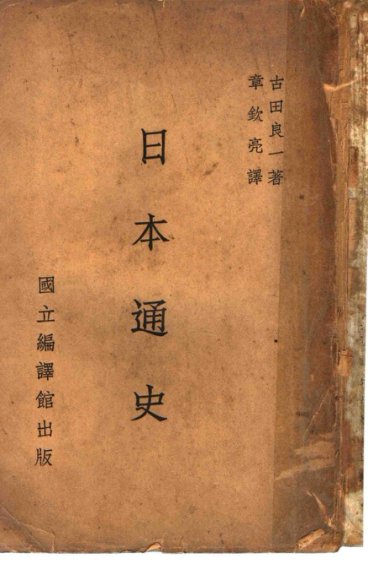 古田良一著
章欽亮譯
日本通史
國立編譯館出版